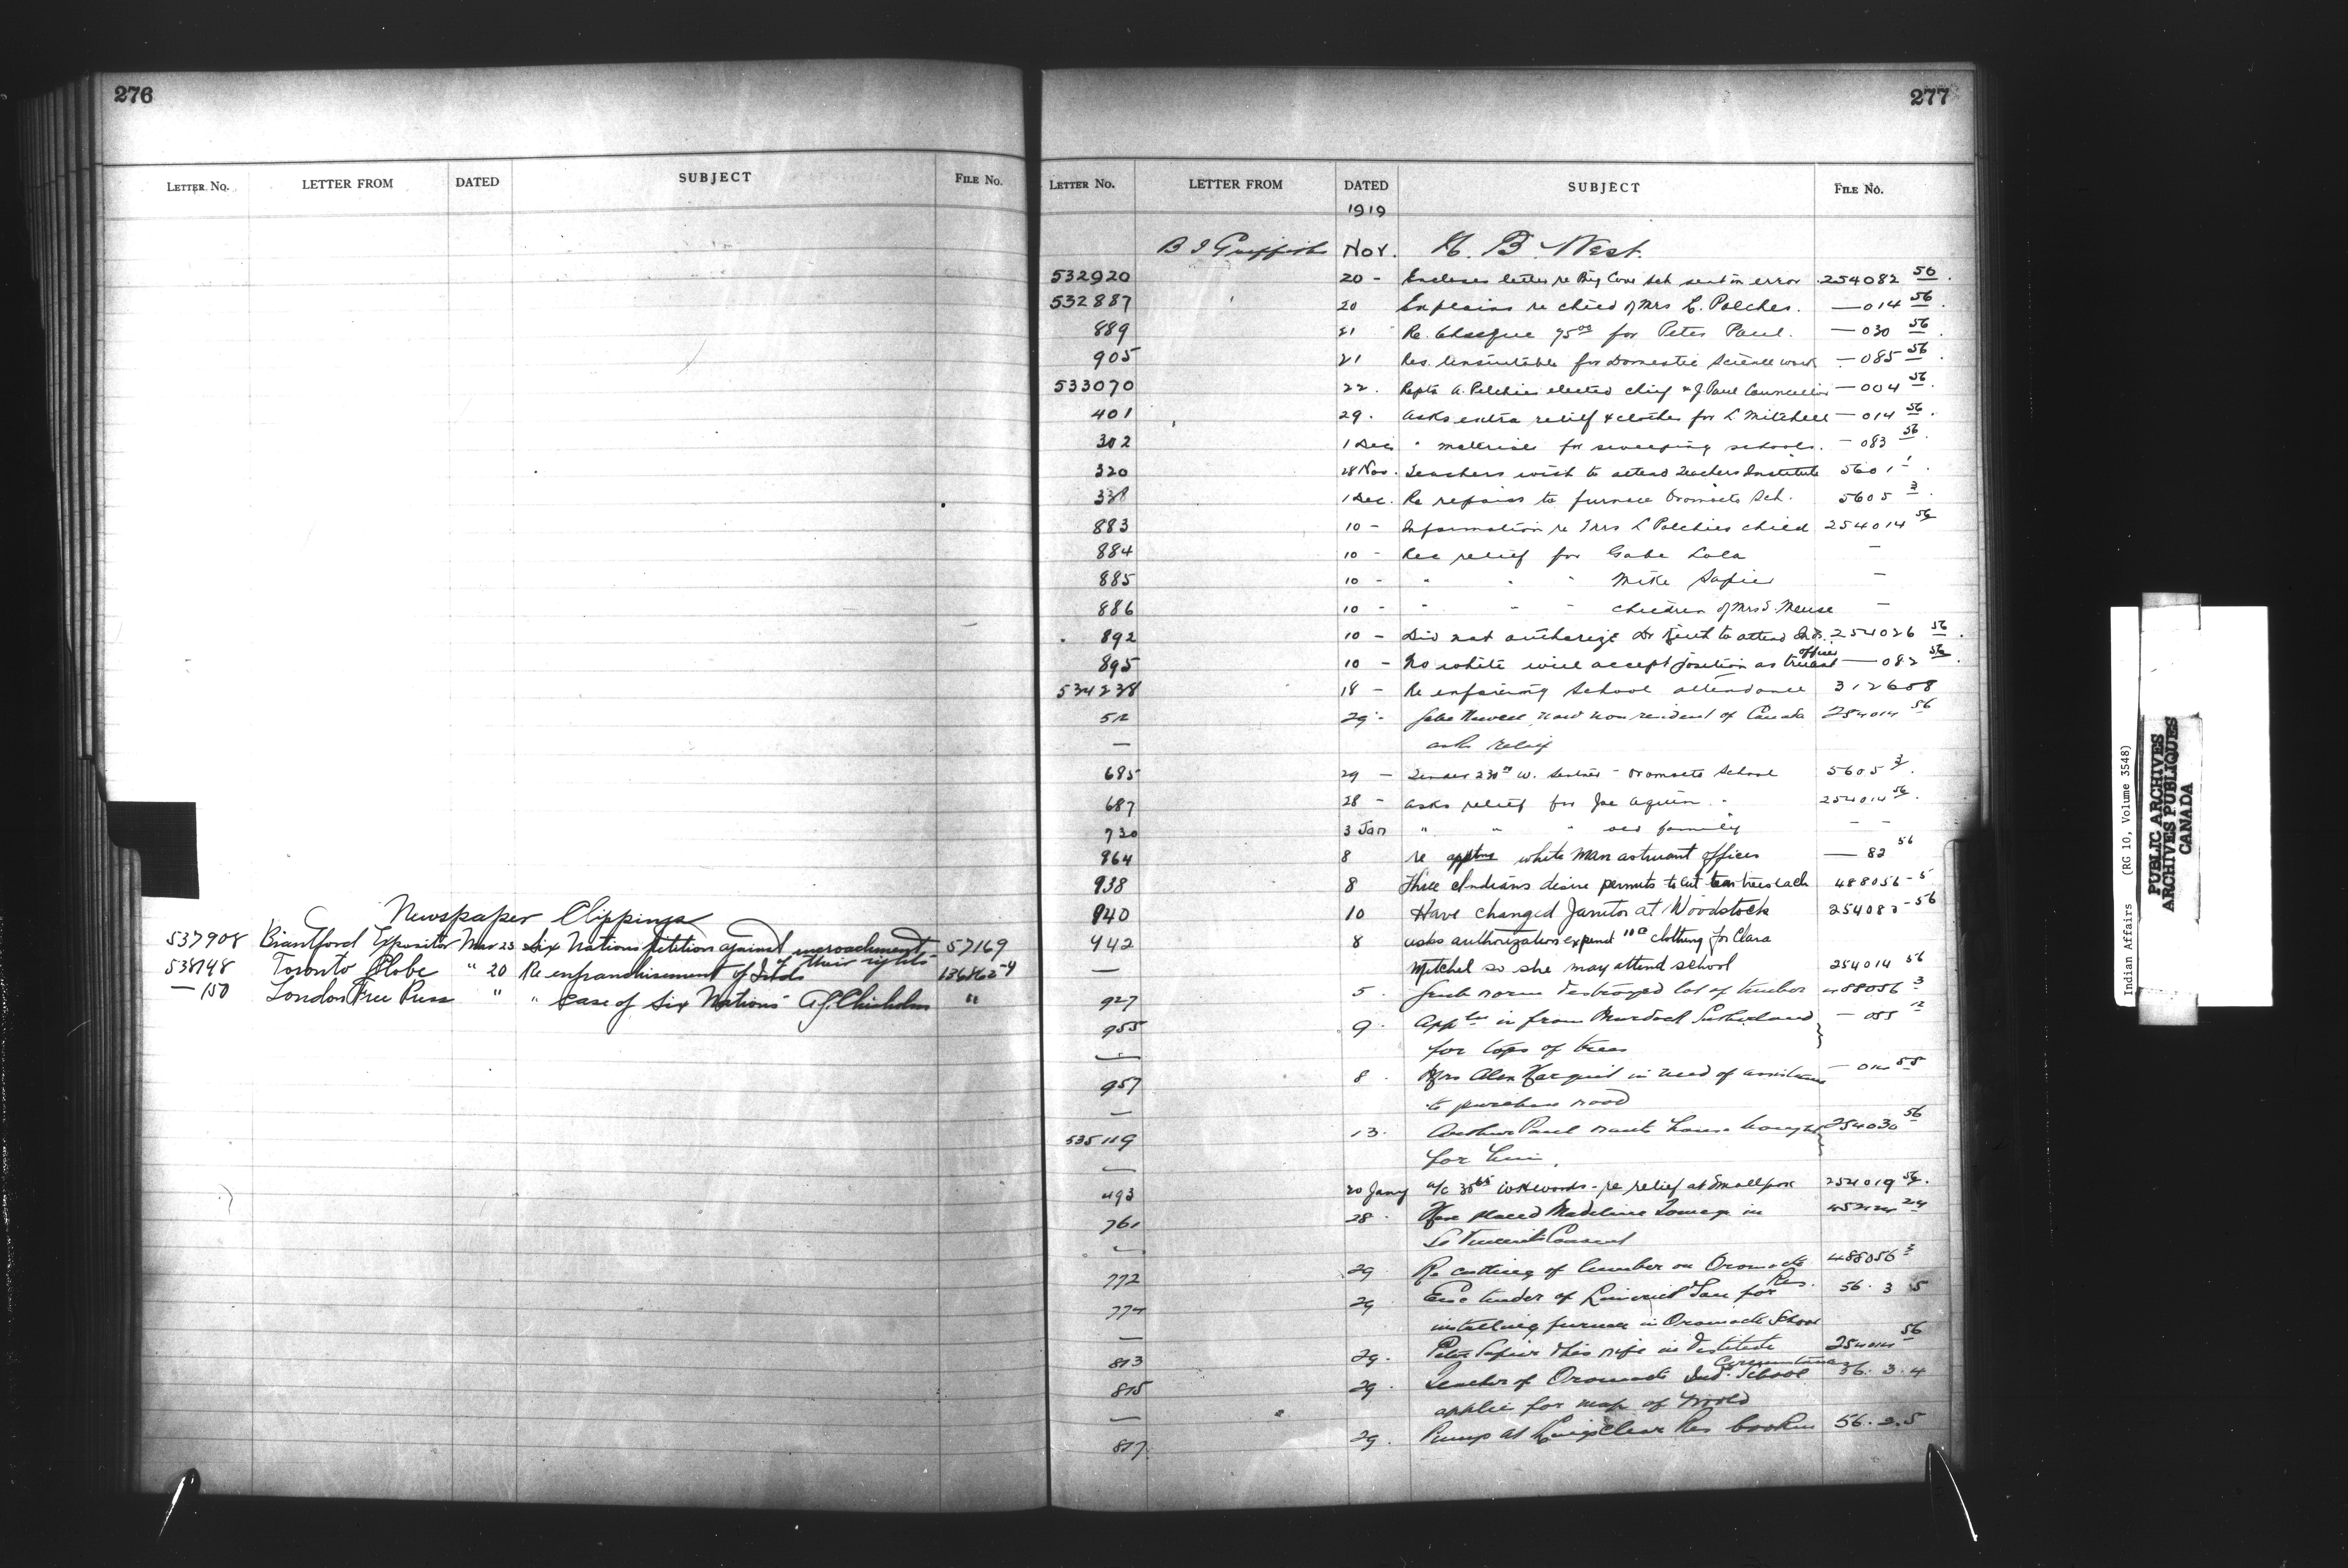 276
LETTER No. LETTER FROM DATED SUBJECT FILE No.
Newspaper Clippings
537908 Brantford Expositor Mar 23 Six Nations petition against encroachment 57169
of their rights
538148 Toronto Globe " 20 Re enfranchisement of Inds
— 150 London Free Press " " case of Six Nations A.G. Chisholm "
277
LETTER No. LETTER FROM DATED SUBJECT FILE No.
1919
B J Griffith Nov. N. B. West.
532920 20 - Encloses letter re Big Cove Sch sent in error 254082 56
532887 20 Explains re child of Mrs L. Polches. — 014 56
889 21 Re. Cheque 75 00 for Peter Paul. — 030 56
905 21 Res. Unsuitable for Domestic Science work — 085 56
533070 22. Repts A. Polchies elected chief & J. Paul Councillor — 004 56
401 29. Asks extra relief & clothes for L Mitchell — 014 56
302 1 Dec " material for sweeping schools. — 083 56
320 28 Nov. Teachers wish to attend Teachers Institute 5601 1
338 1 Dec. Re repairs to furnace Oromocto Sch. 5605 3
883 10 - Information re Mrs L Polchies child 254014 56
884 10 - Rec relief for Gabe Lola —
885 10 - " " " Mike Sapier —
886 10 - " " " children of Mrs S. Meuse —
892 10 - Did not authorize Dr to attend Inds. 254026 56
895 10 - No white will accept position as truant officer — 082 56
534238 18 - Re enforcing School attendance 312608
52 29 - Gabe now non resident of Canada 254014 56
— asks relief
685 29 — Tender 230 00 W. - Oromocto School 5605 3
687 28 - asks relief for Joe Aquin - 254014 56
730 3 Jan " " " old family - -
864 8 re apptmt white man as truant officer — 82 56
938 8 Three Indians desire permits to cut ten trees each 488056-5
940 10 Have changed Janitor at Woodstock 254083-56
942 8 asks authorization expend 11 00 clothing for Clara
— Mitchel so she may attend school 254014 56
927 5. destroyed lot of timber 488056 3
955 9. Appln is from Murdock Sutherland — 055 12
— for tops of trees
957 8. Mrs Alex in need of assistance — 014 55
— to purchase wood
535119 13. Arthur Paul wants house bought 254030 56
— for him.
493 20 Jany a/c re relief at Smallpox 254019 56.
761 28. Have placed Madeline in
— St Vincents Convent
772 29 Re cutting of lumber on Oromocto Res. 488056 3
774 29 Enc tender of for 56. 3 5
— installing furnace in Oromocto School
813 29. Peter Sapier & his wife in destitute circumstances 254014 56
815 29. Teacher of Oromocto Ind. School 56. 3. 4
— applie for map of World
817. 29. Pump at Kingsclear Res broken 56. 2. 5
Indian Affairs (RG 10, Volume 3548)
PUBLIC ARCHIVES
ARCHIVES PUBLIQUES
CANADA